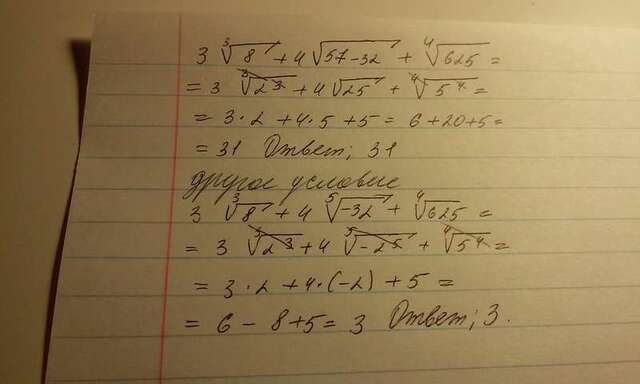 3 ∛8 + 4 √57-32 + ∜625 =
= 3 ∛2³ + 4 √25 + ∜5⁴ =
= 3·2 + 4·5 + 5 = 6 + 20 + 5 =
= 31 Ответ; 31
другое условие
3 ∛8 + 4 ⁵√-32 + ∜625 =
= 3 ∛2³ + 4 ⁵√-2⁵ + ∜5⁴ =
= 3·2 + 4·(-2) + 5 =
= 6 - 8 + 5 = 3 Ответ; 3.